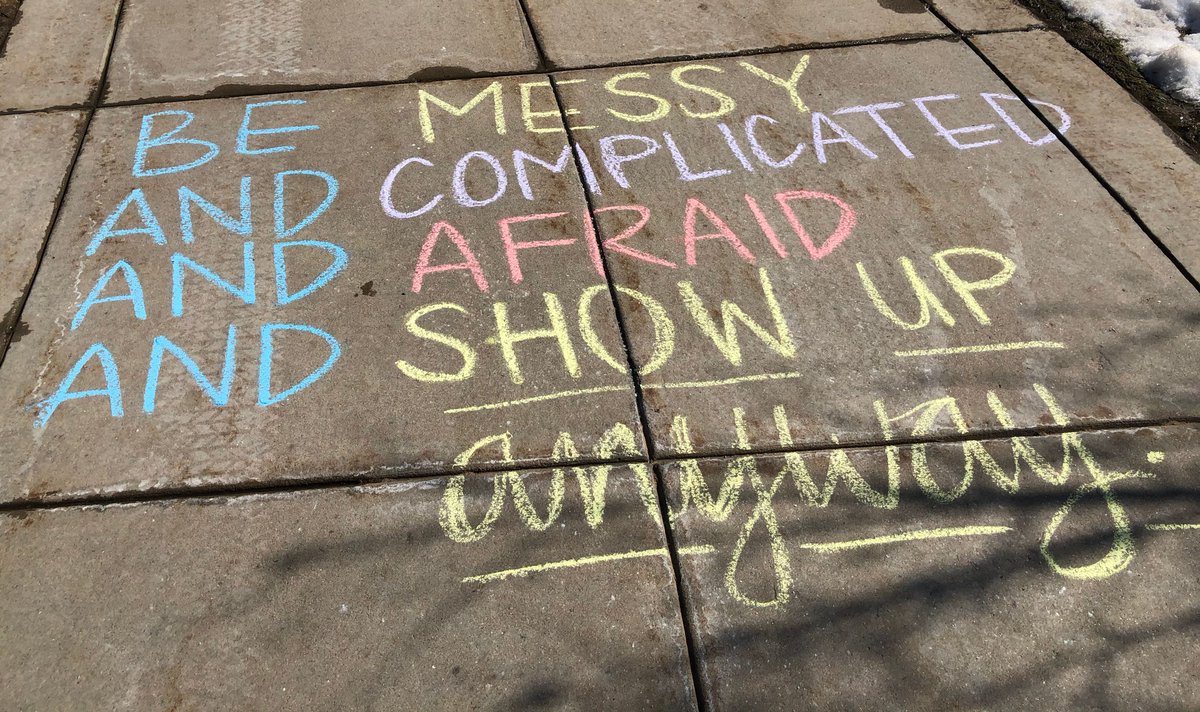 BE MESSY
AND COMPLICATED
AND AFRAID
AND SHOW UP
anyway.